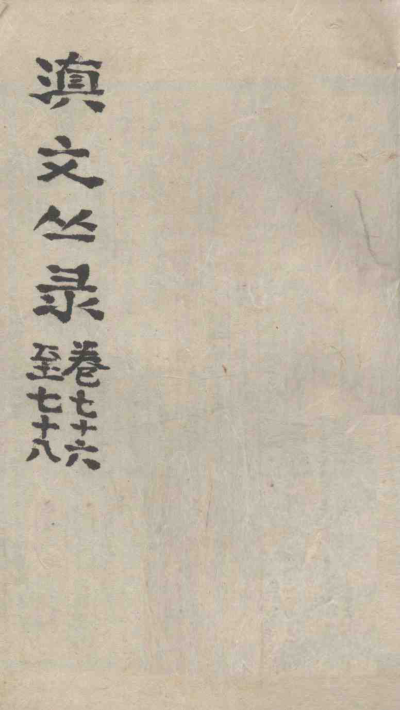 滇文丛录
卷七十六
至七十八